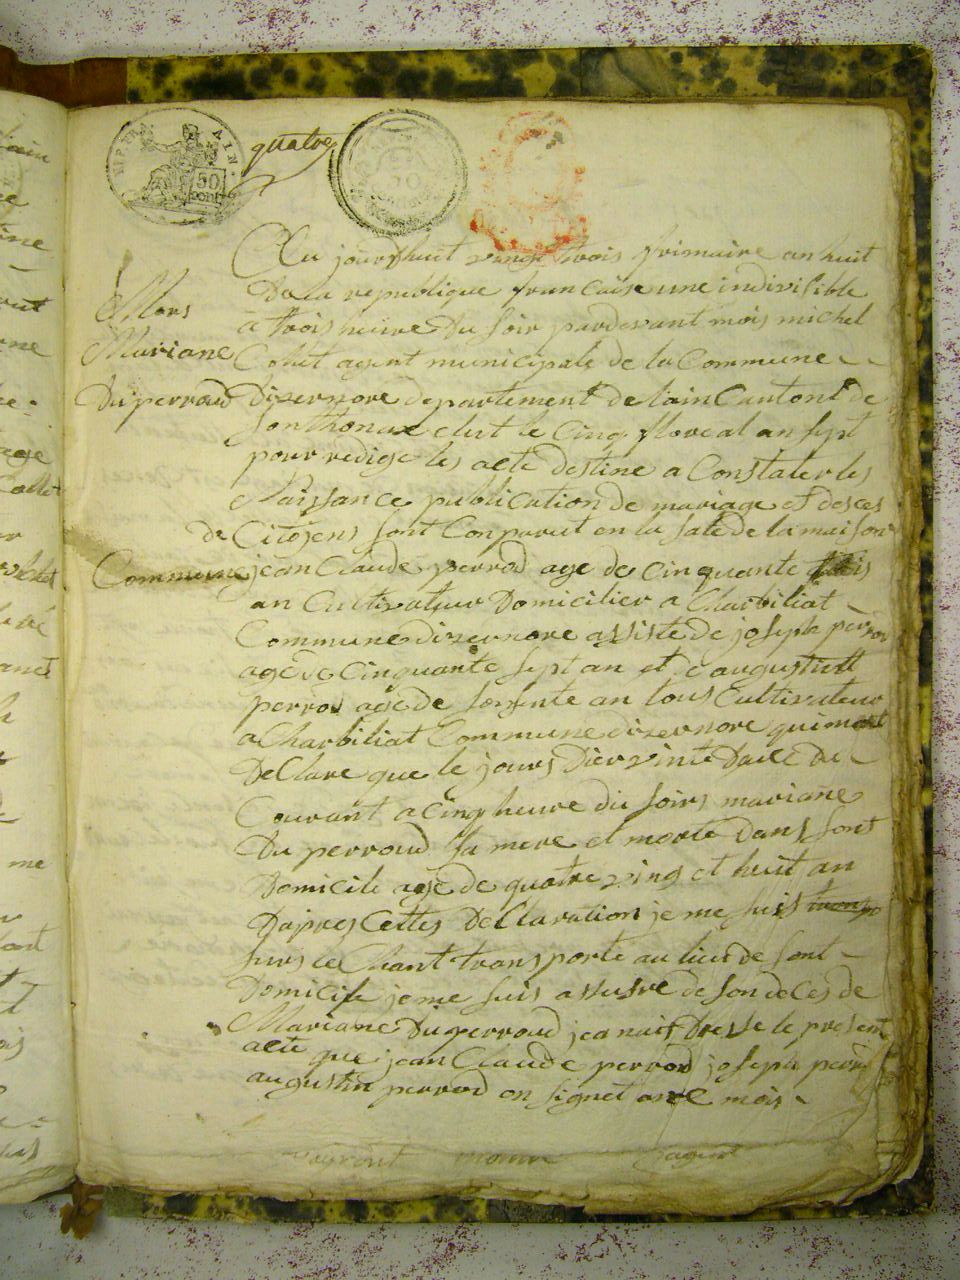 AIN.
50
cent
quatre
Au jourdhuit vingt trois frimaire an huit
De la republique francaise une indivisible
à trois heure du soir pardevant mois michel
Collet agent municipale de la Commune
Mors
Mariane
Duperroud
Dizernore departement de lain Cantont de
Sonthonax elut le Cinq floreal an sept
pour redige les acte destine a Constater les
Naissance publication de mariage et desces
de Citojens sont Conparut en la sale de la maison
Commune jean Claude perrod age de Cinquante trois
an Cultivateur Domicilier a Charbiliat
Commune dizernore assiste de joseph perrod
age de Cinquante sept an et daugustin
perrod age de sosente an tous Cultivateur
a Charbiliat Commune dizernore qui mont
DeClare que le jours Dier vinte Daux du
Courant a Cinq heure du soirs mariane
Du perroud sa mere et morte Dans sont
Domicile age de quatre ving et huit an
Dapres Cettes DeClaration je me suis
surs le Chant transporte au lieu de sont
Domicile je me suis assusre de son deces de
Mariane Du perroud jea nait Dresse le present
acte que jean Claude perrod joseph perrod
augustin perrod on signet avec mois